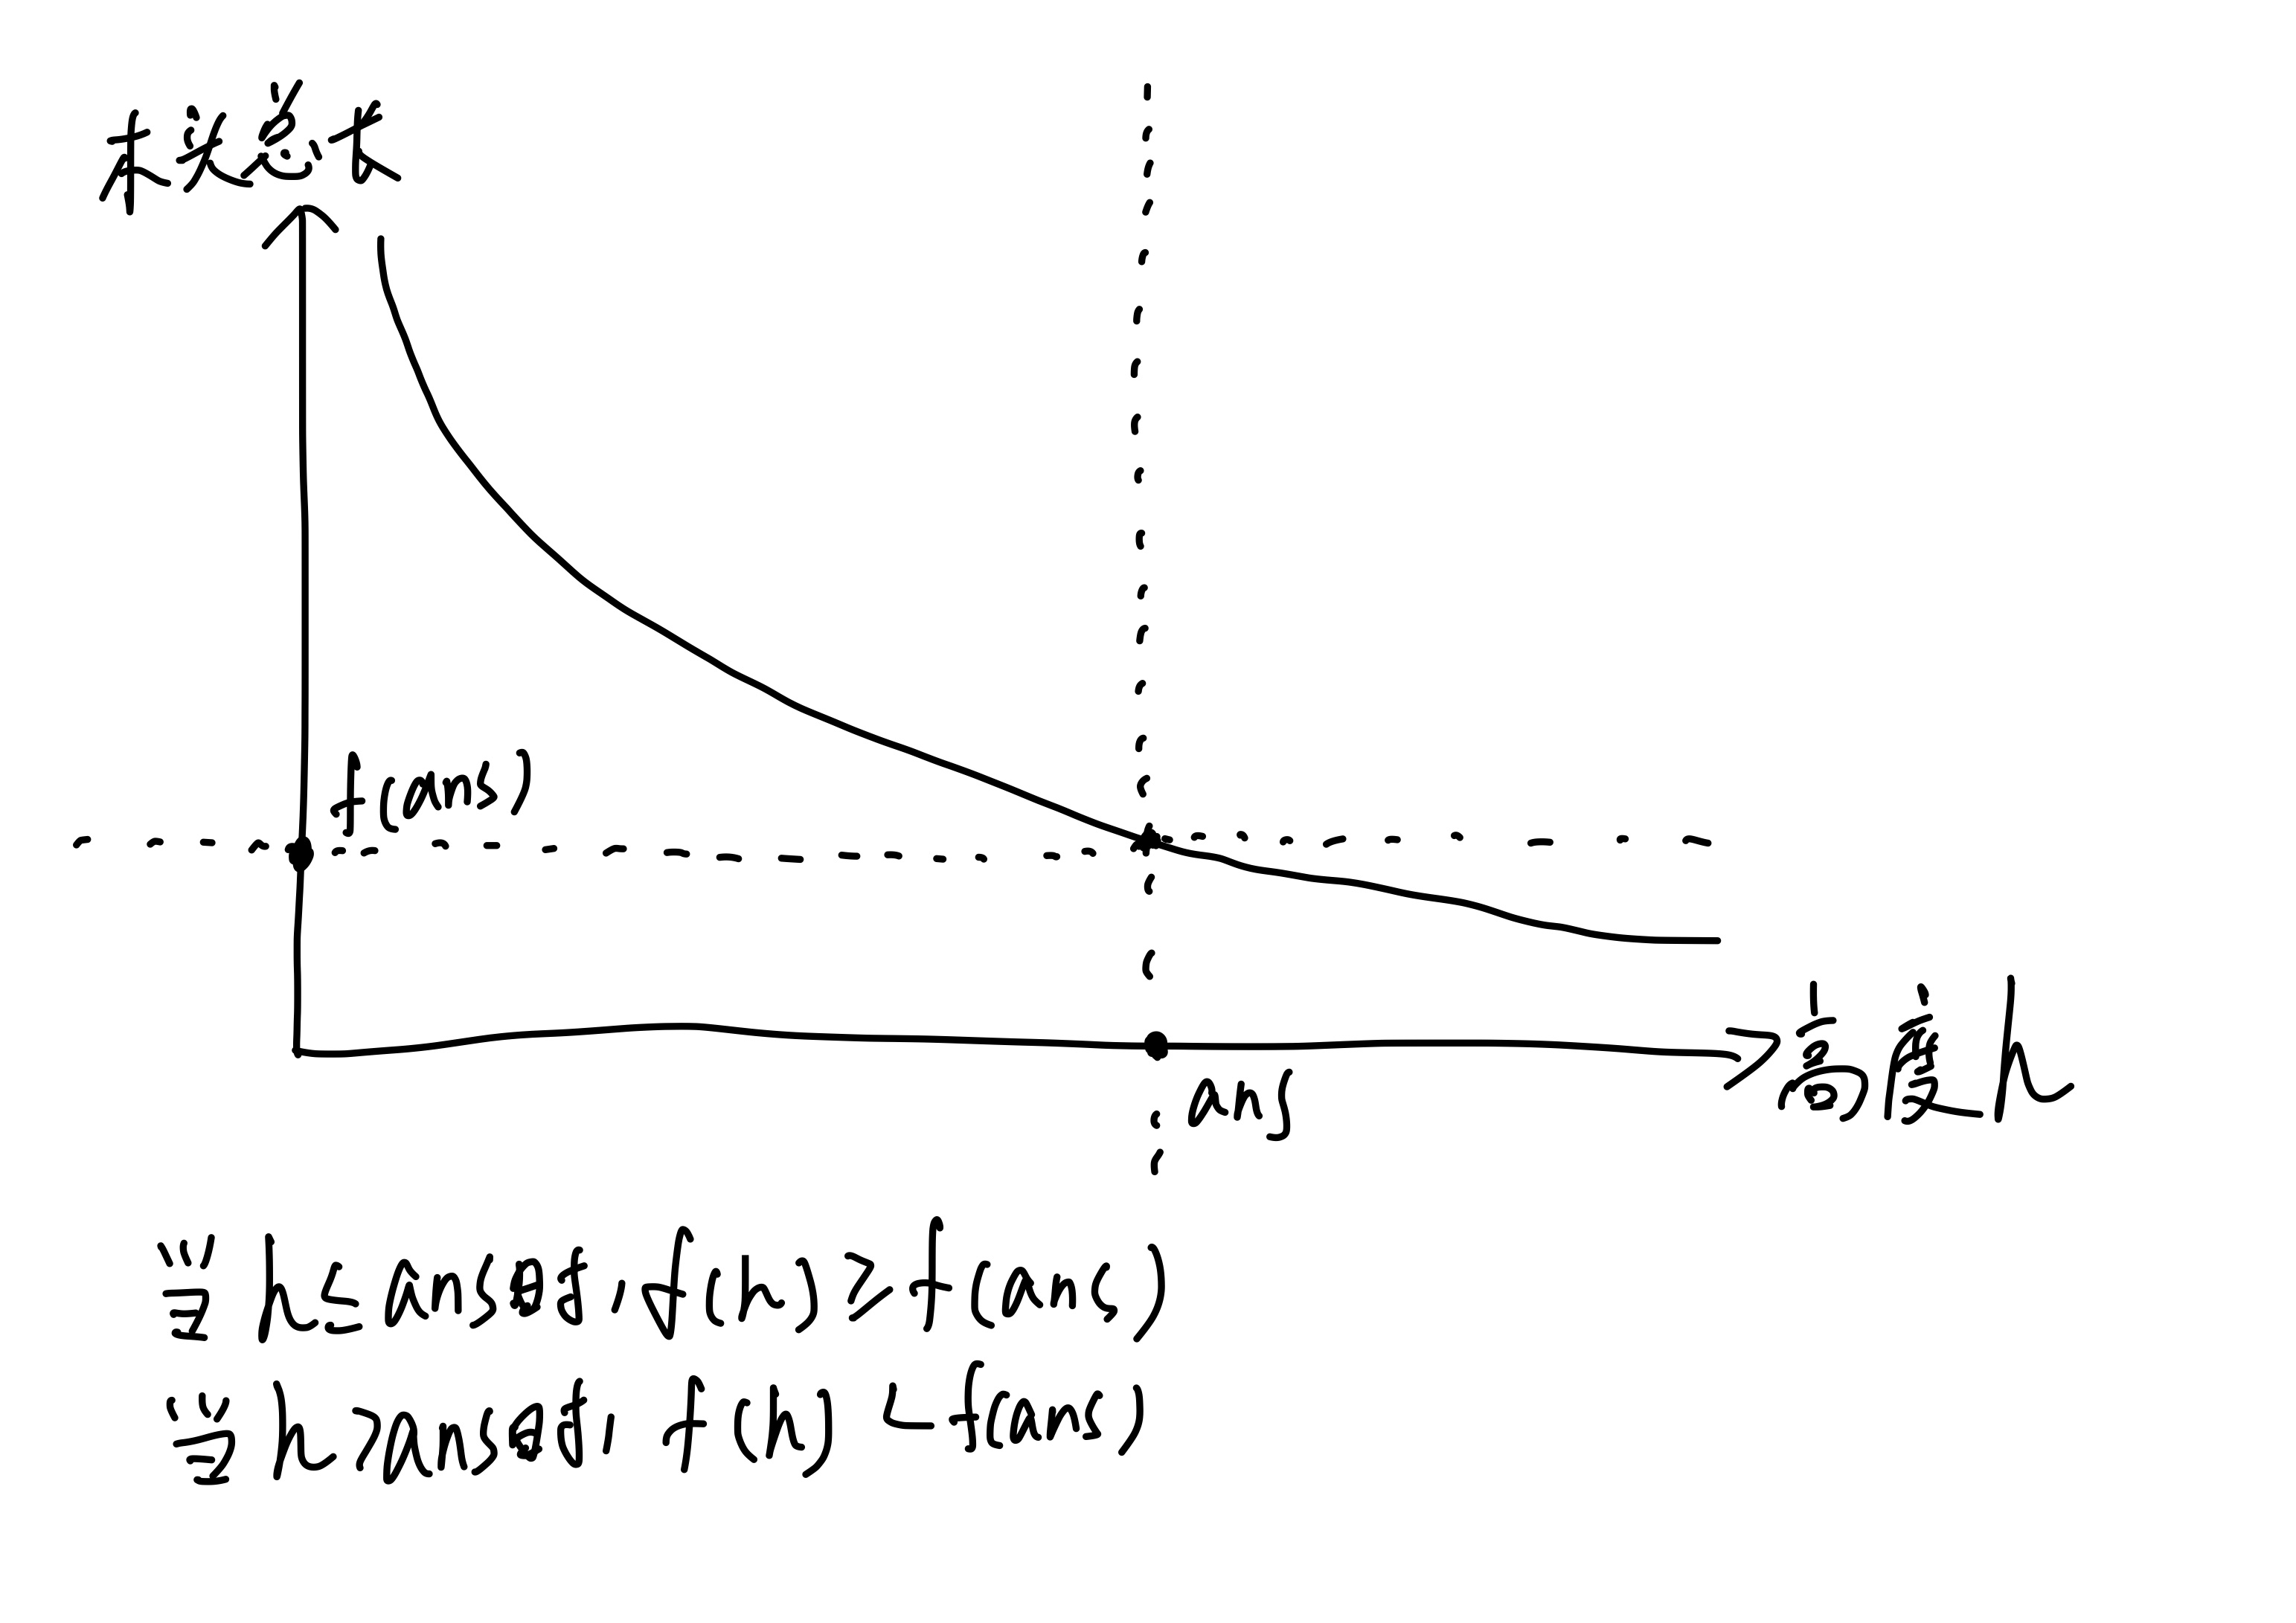 木头总长
f(ans)
高度h
ans
当h≤ans时,f(h)≥f(ans)
当h>ans时,f(h)<f(ans)